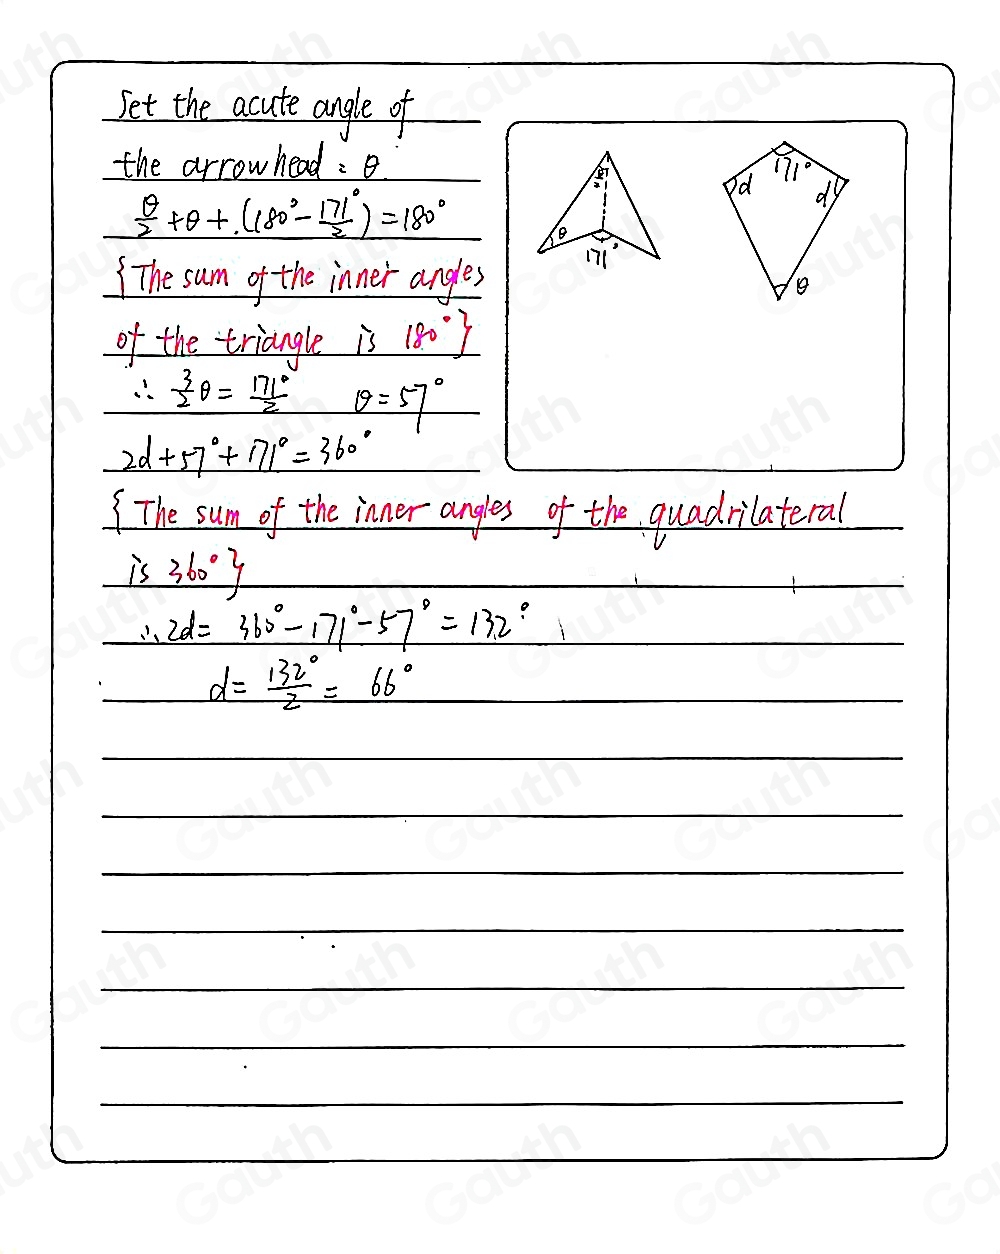 Set the acute angle of
the arrowhead = θ.
θ/2 + θ + (180° - 171°/2) = 180°
{The sum of the inner angles
of the triangle is 180°}
∴ 3/2 θ = 171°/2 θ = 57°
2d + 57° + 171° = 360°
{The sum of the inner angles of the quadrilateral
is 360°}
∴ 2d = 360° - 171° - 57° = 132°
d = 132°/2 = 66°
θ/2
θ
171°
171°
d
d
θ
Gauth